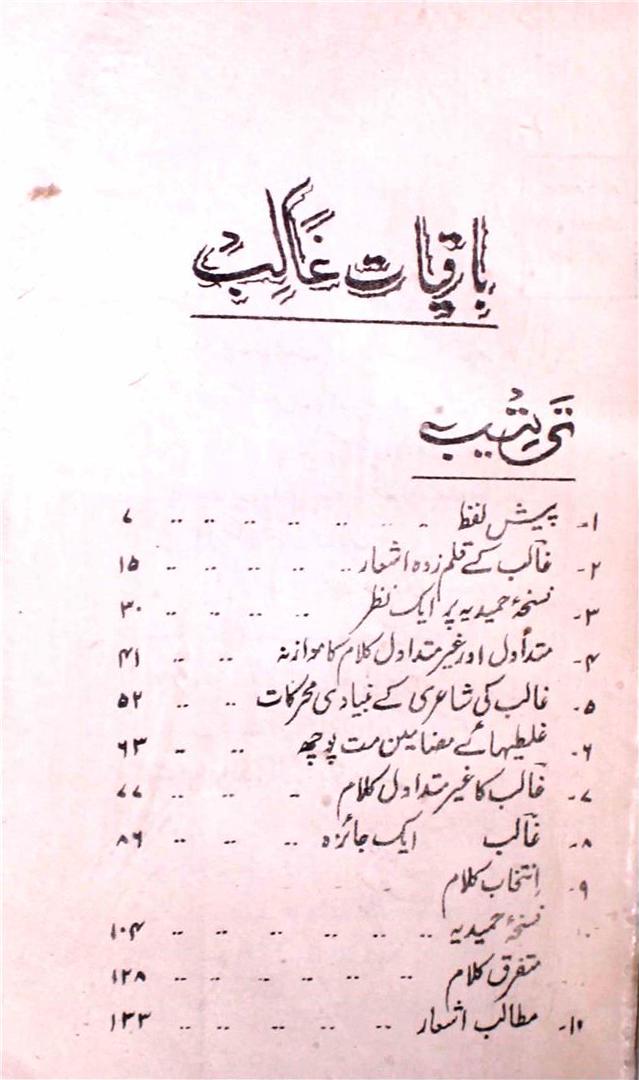 باقیات غالب
ترتیب
۱۔ پیش لفظ .. .. .. .. .. .. .. ۷
۲۔ غالب کے قلم زدہ اشعار .. .. .. .. .. ۱۵
۳۔ نسخۂ حمیدیہ پر ایک نظر .. .. .. .. .. ۳۰
۴۔ متداول اور غیر متداول کلام کا موازنہ .. .. ۴۱
۵۔ غالب کی شاعری کے بنیادی محرکات .. .. ۵۲
۶۔ غلطیہائے مضامین مت پوچھ .. .. ۶۳
۷۔ غالب کا غیر متداول کلام .. .. .. ۷۷
۸۔ غالب ایک جائزہ .. .. .. ۸۶
۹۔ انتخاب کلام
نسخۂ حمیدیہ .. .. .. .. .. .. ۱۰۴
متفرق کلام .. .. .. .. .. .. ۱۲۸
۱۰۔ مطالب اشعار .. .. .. .. .. ۱۳۳